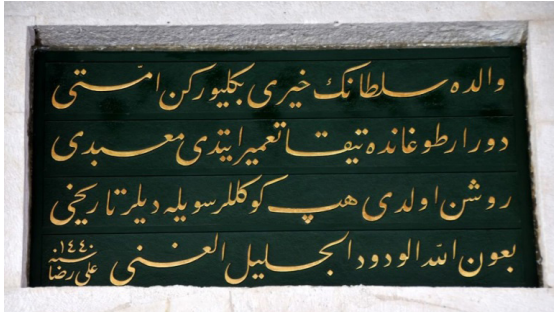 والده سلطانك خيرى بكليوركن امّتى
دور اردوغانده تيقا تعمير ايتدى معبدى
روشن اولدى هپ كوكللر سويله ديلر تاريخى
بعون الله الودود الجليل الغنى
سنه ١٤٤٠
على رضا